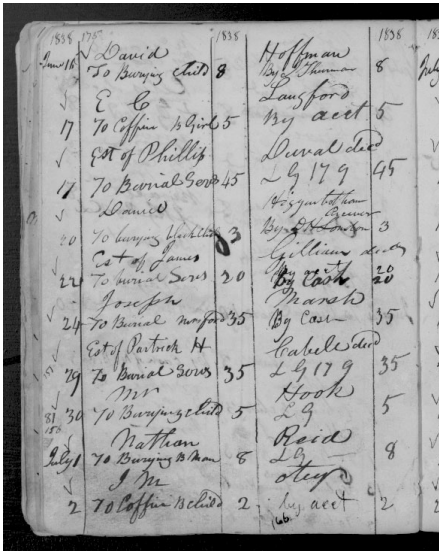 1838 175 1838 1838 1838
David Hoffman
June 16 To Burying child 8 By 8 July
E C Langford
17 To Coffin B Girl 5 By acct 5
Est of Phillip Duval died
17 To Burial Servs 45 L G 179 45
Daniel Higginbotham
20 To burying 3 By 3
Est of James Gilliam
22 To burial Servs 20 By Cash 20
Joseph Marsh
24 To Burial 35 By Cash 35
Est of Partrick H Cabele died
29 To Burial Servs 35 L G 179 35
Mr Hook
30 To Burying child 5 L G 5
Nathan Raid
July 1 To Burying B Man 8 L G 8
J M Otey
2 To Coffin B child 2 by acct 2
166